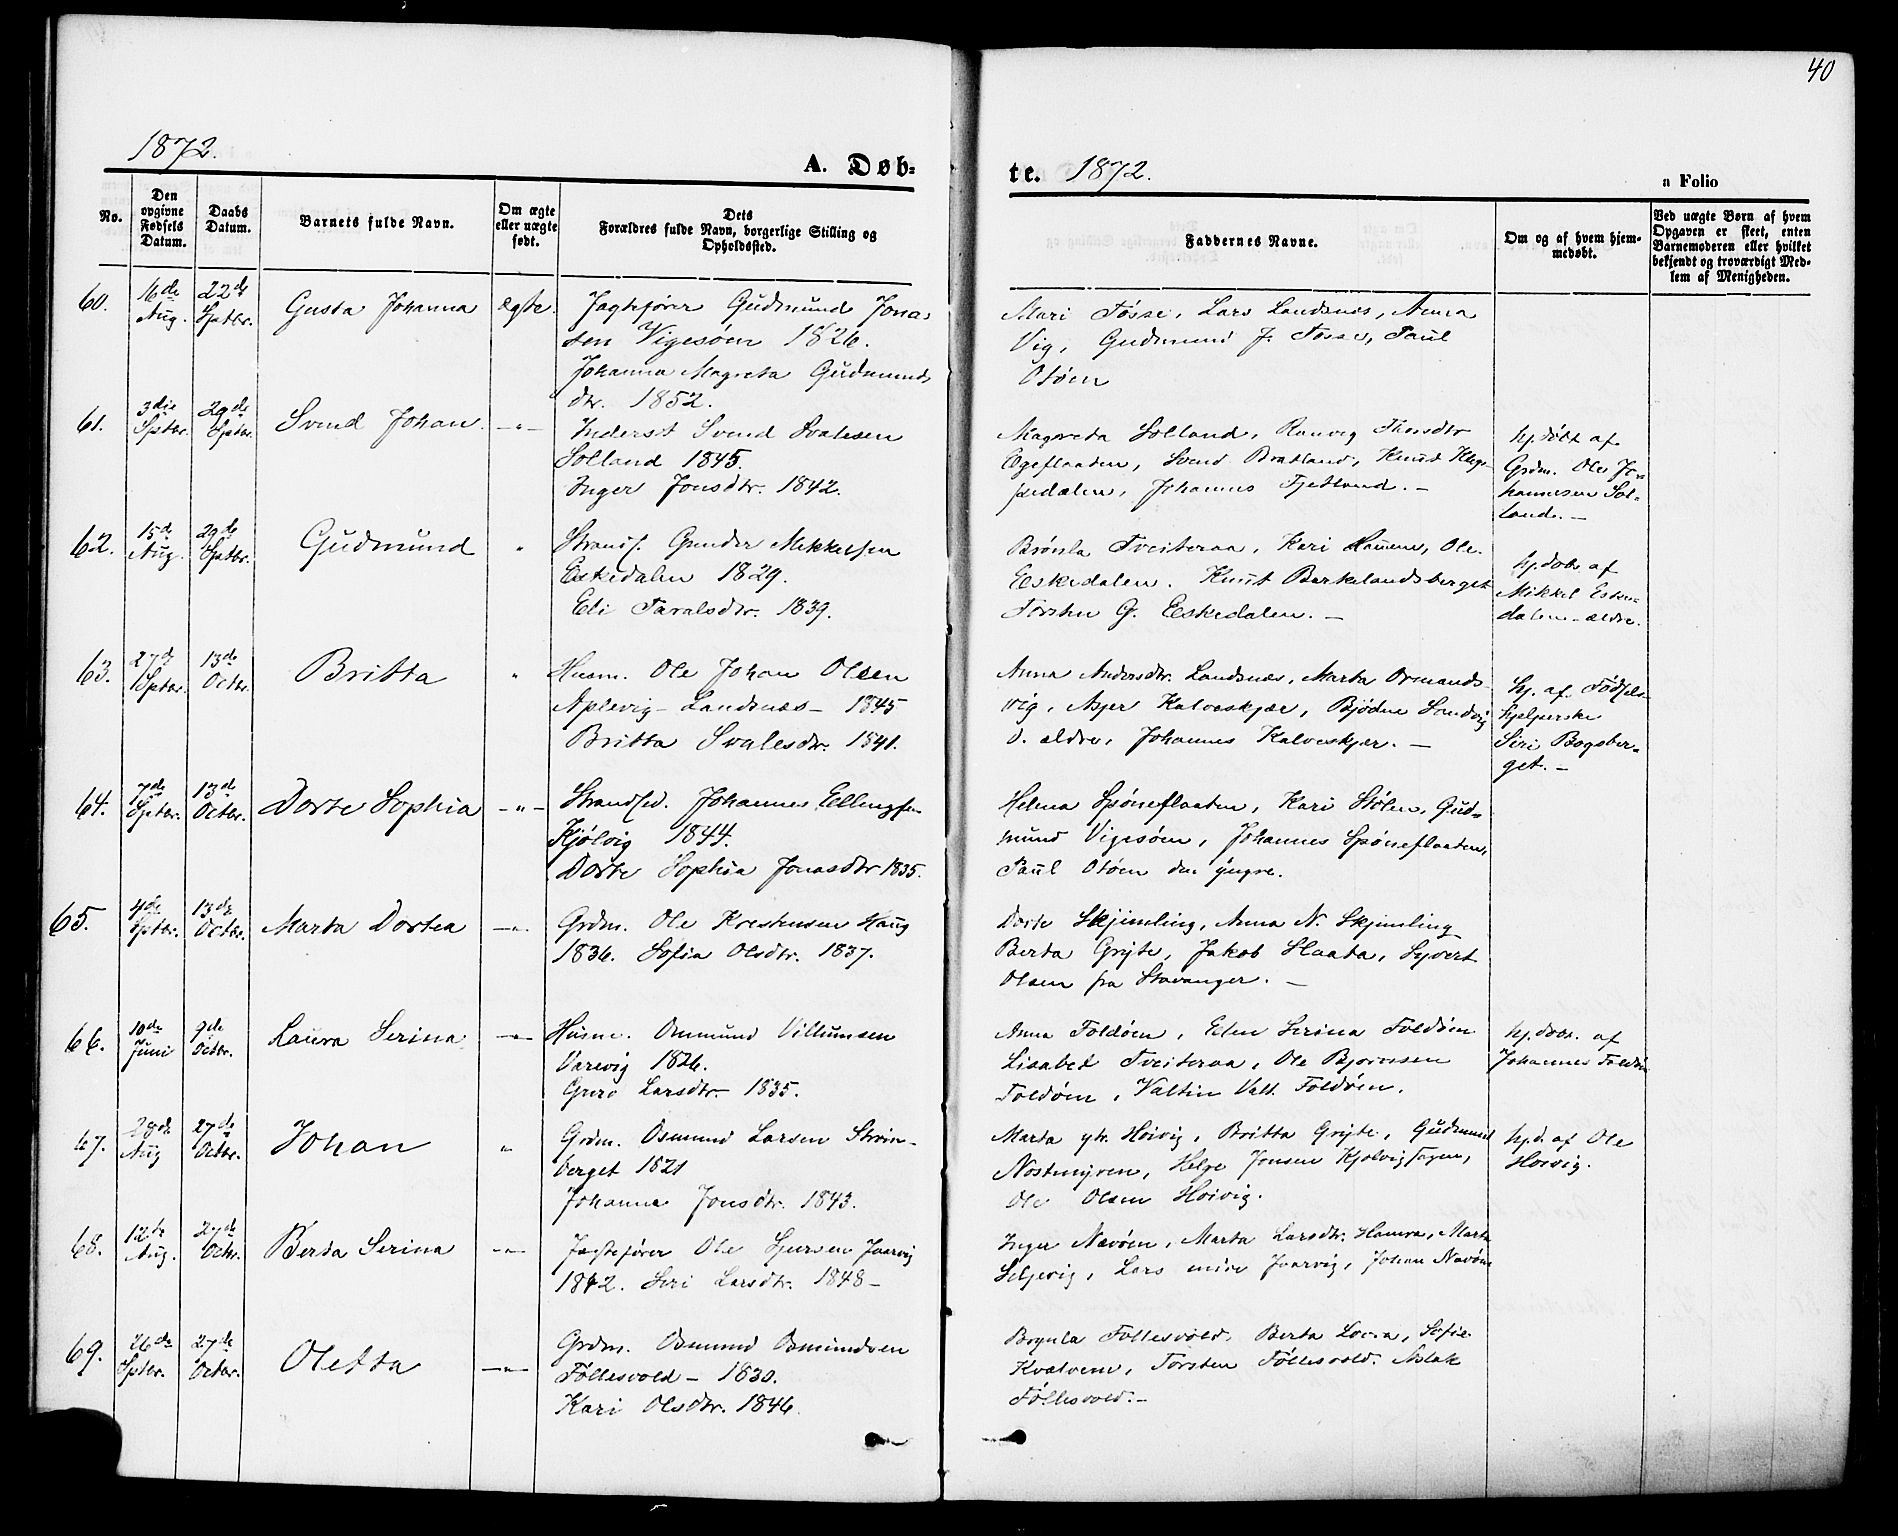 40
1872.
A. Døb=
te. 1872.
a Folio
No.
Den
opgivne
Fødsels
Datum.
Daabs
Datum.
Barnets fulde Navn.
Om ægte
eller uægte
født.
Dets
Forældres fulde Navn, borgerlige Stilling og
Opholdssted.
Faddernes Navne.
Om og af hvem hjem-
medøbt.
Ved uægte Børn af hvem
Opgaven er skeet, enten
Barnemoderen eller hvilket
bekjendt og troværdigt Med-
lem af Menigheden.
60.
16de
Aug.
22de
Sptbr.
Gusta Johanna
ægte.
Jagtefører Gudmund Jona-
sen Vigesøen 1826.
Johanna Magreta Gudmunds
dtr. 1852.
Mari Fosse, Lars Landsnæs, Anna
Vig, Gudmund J. Fosse, Paul
Otøen
61.
3die
Sptbr.
29de
Sptbr.
Svend Johan.
-"-
Inderst Svend Svalesen
Solland 1845.
Inger Jonsdtr. 1842.
Magreta Solland, Ranveg Thorsdtr
Øgeflaaten, Svend Bratland, Knud
Johannes Fjetland. -
hj.døbt af
Grdm. Ole Jo-
hannesen Sol-
land. -
62.
15de
Aug.
29de
Sptbr.
Gudmund
"
Strands. Gunder Mikkelsen
Eskedalen 1829.
Eli Taralsdtr. 1839.
Tveiteraa, Kari Ole
Eeskedalen. Knut Berkelandsberget
Torsten G. Eeskedalen. -
hj.døb. af
Mikkel Eske-
dalen ældre.
63.
27de
Sptbr.
13de
Octbr.
Britta
"
Husm. Ole Johan Olsen
Aplevig - Landsnæs - 1845
Britta Svalesdtr. 1841.
Anna Andersdtr. Landsnæs, Marta Ormands-
vig, Asjer Kalveskjær, Bjødne Sandvig
d. ældre, Johannes Kalveskjær. -
hj. af Fødsels-
hjelperske
Siri Bogsber-
get. -
64.
7de
Sptbr.
13de
Octbr.
Dorte Sophia
-"-
Strandsid. Johannes Ellingsen
Kjølvig 1844.
Dorte Sophia Jonasdtr 1835.
Helena Spøneflaaten, Kari Stølen, Gud-
mund Vigesøen, Johannes Spøneflaaten,
Paul Otøen den yngre.
65.
4de
Sptbr.
13de
Octbr.
Marta Dortea
-"-
Grdm. Ole Krestensen Haug
1836. Sofia Olsdtr. 1837.
Dorte Skjimling, Anna N. Skjimling
Berta Grytte, Jakob Slaata, Syvert
Olsen fra Stavanger. -
66.
10de
Juni
9de
Octbr.
Laura Serina
-"-
Husm. Osmund Villumsen
Varevig 1826.
Guro Larsdtr. 1835.
Anna Foldøen, Elen Serina Foldøen
Lisabed Tveiteraa, Ole Bjørnsen
Foldøen, Valtin Valt. Foldøen.
hj.døbt. af
Johannes Foldøen
67.
28de
Aug
27de
Octbr.
Johan
"
Grdm. Osmund Larsen Strøm-
berget 1821
Johanna Jonsdtr. 1843.
Marta yts. Hoivig, Britta Grytte, Gudmund
Nostmyren, Helge Jonsen Kjølvigstøen,
Ole Olsen Hoivig.
hj.d. af Ole
Hoivig.
68.
12te
Aug.
27de
Octbr.
Berta Serina
-"-
Jagtefører Ole Sjursen Joarvig
1842. Siri Larsdtr. 1848 -
Inger Nævøen, Marta Larsdtr. Hamra, Marta
Selgevig, Lars Joarvig, Johan Nævøen
69.
26de
Sptbr.
27de
Octbr.
Oletta
-"-
Grdm. Osmund Osmundsen
Føllesvold - 1830.
Kari Olsdtr. 1846
Føllesvold, Berta Sofie
Kvalvem, Torsten Føllesvold. Aslak
Føllesvold. -